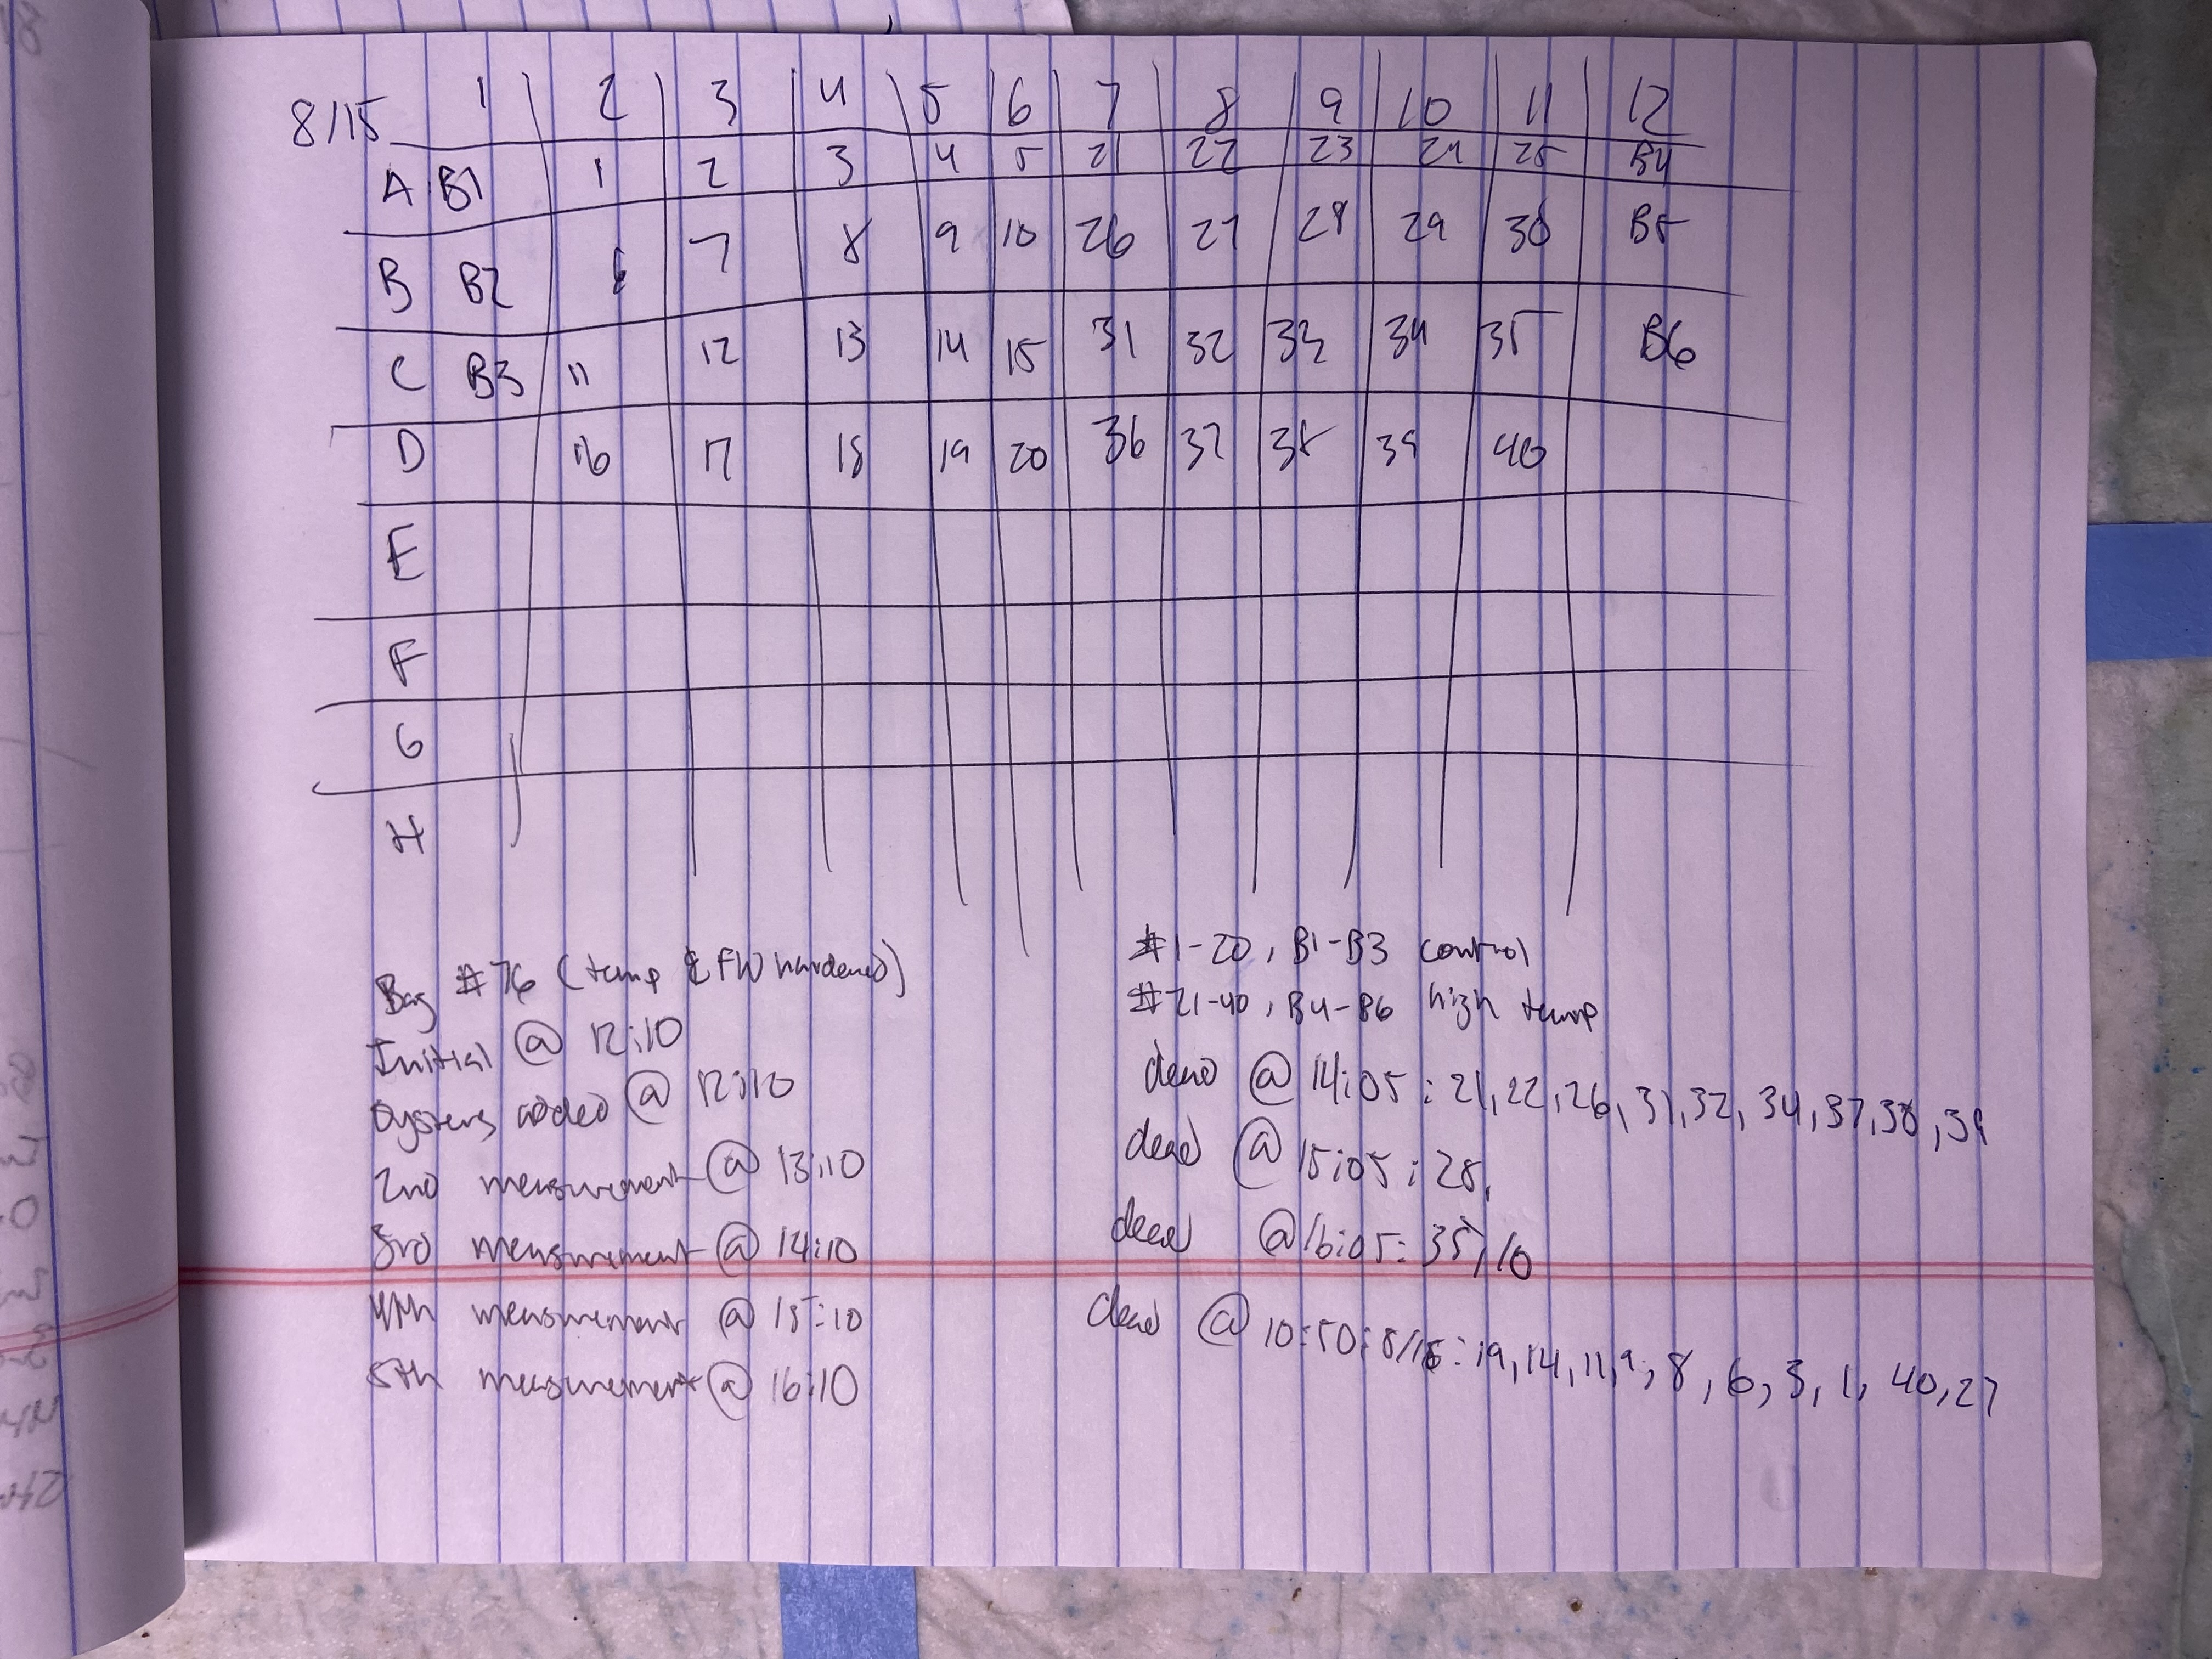 8/15 1 2 3 4 5 6 7 8 9 10 11 12
A B1 1 2 3 4 5 21 22 23 24 25 B4
B B2 6 7 8 9 10 26 27 28 29 30 B5
C B3 11 12 13 14 15 31 32 33 34 35 B6
D 16 17 18 19 20 36 37 38 39 40
E
F
G
H
Bag #76 (temp & FW hardened)
Initial @ 12:10
oysters added @ 12:10
2nd measurement @ 13:10
3rd measurement @ 14:10
4th measurement @ 15:10
5th measurement @ 16:10
#1-20, B1-B3 control
#21-40, B4-B6 high temp
dead @ 14:05: 21, 22, 26, 31, 32, 34, 37, 38, 39
dead @ 15:05: 28,
dead @ 16:05: 35, 10
dead @ 10:50: : 19, 14, 11, 9, 8, 6, 3, 1, 40, 27